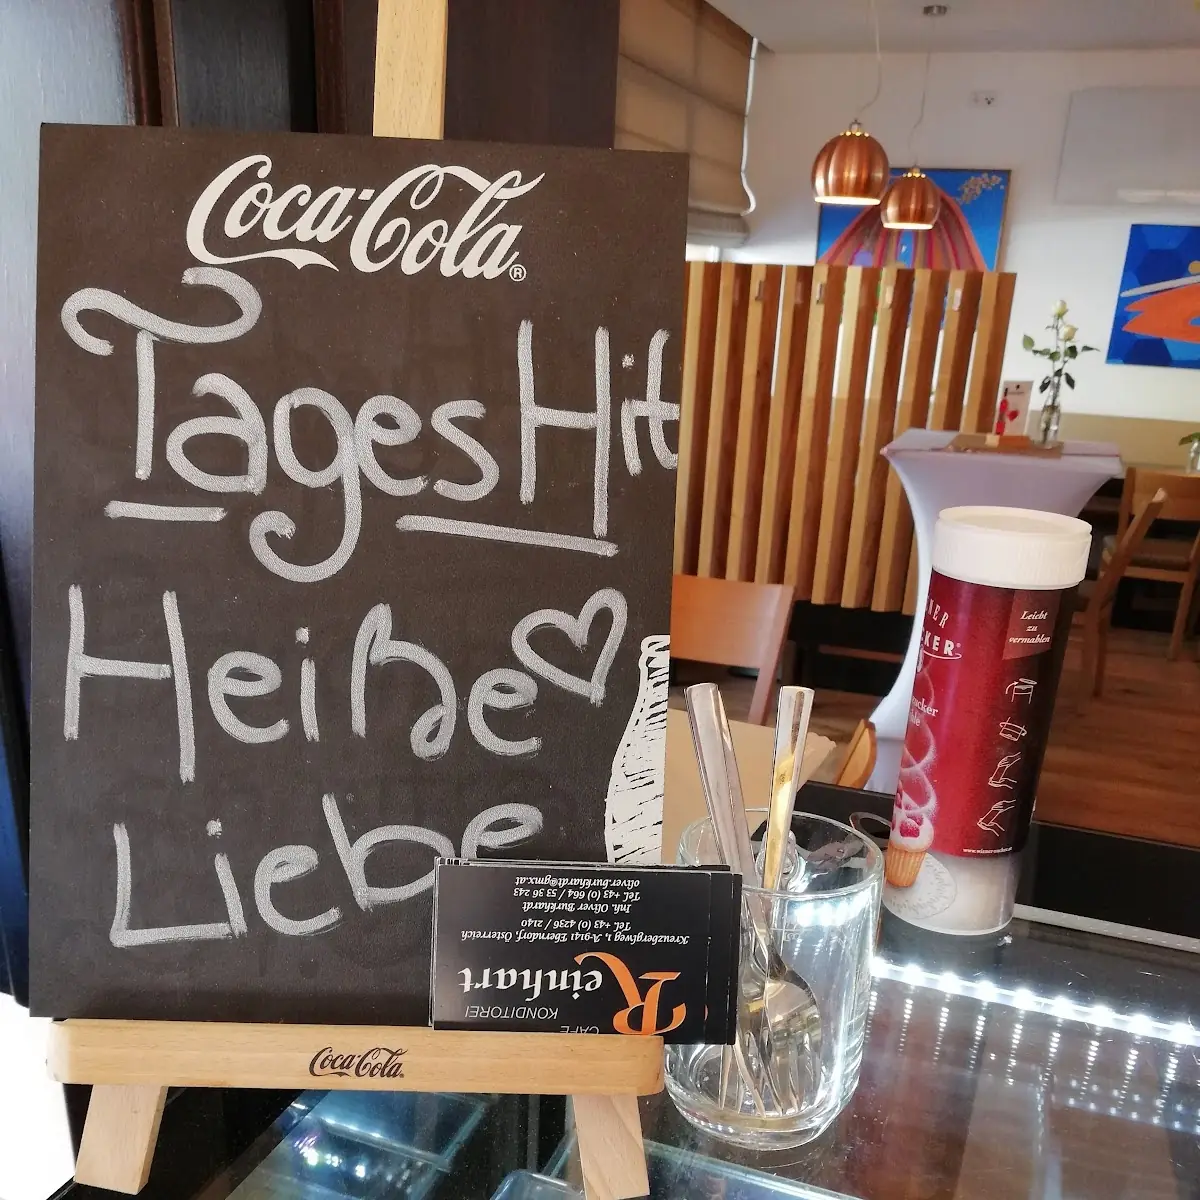 Coca-Cola®
Tages Hit
Heiße
Liebe
CAFE
KONDITOREI
Reinhart
Kreuzberglweg 1, A-9141 Eberndorf, Österreich
Tel. +43 (0) 4236 / 2140
Inh. Oliver Burkhardt
Tel. +43 (0) 664 / 53 36 243
oliver.burkhardt@gmx.at
Coca-Cola
Leicht
zu
vermahlen